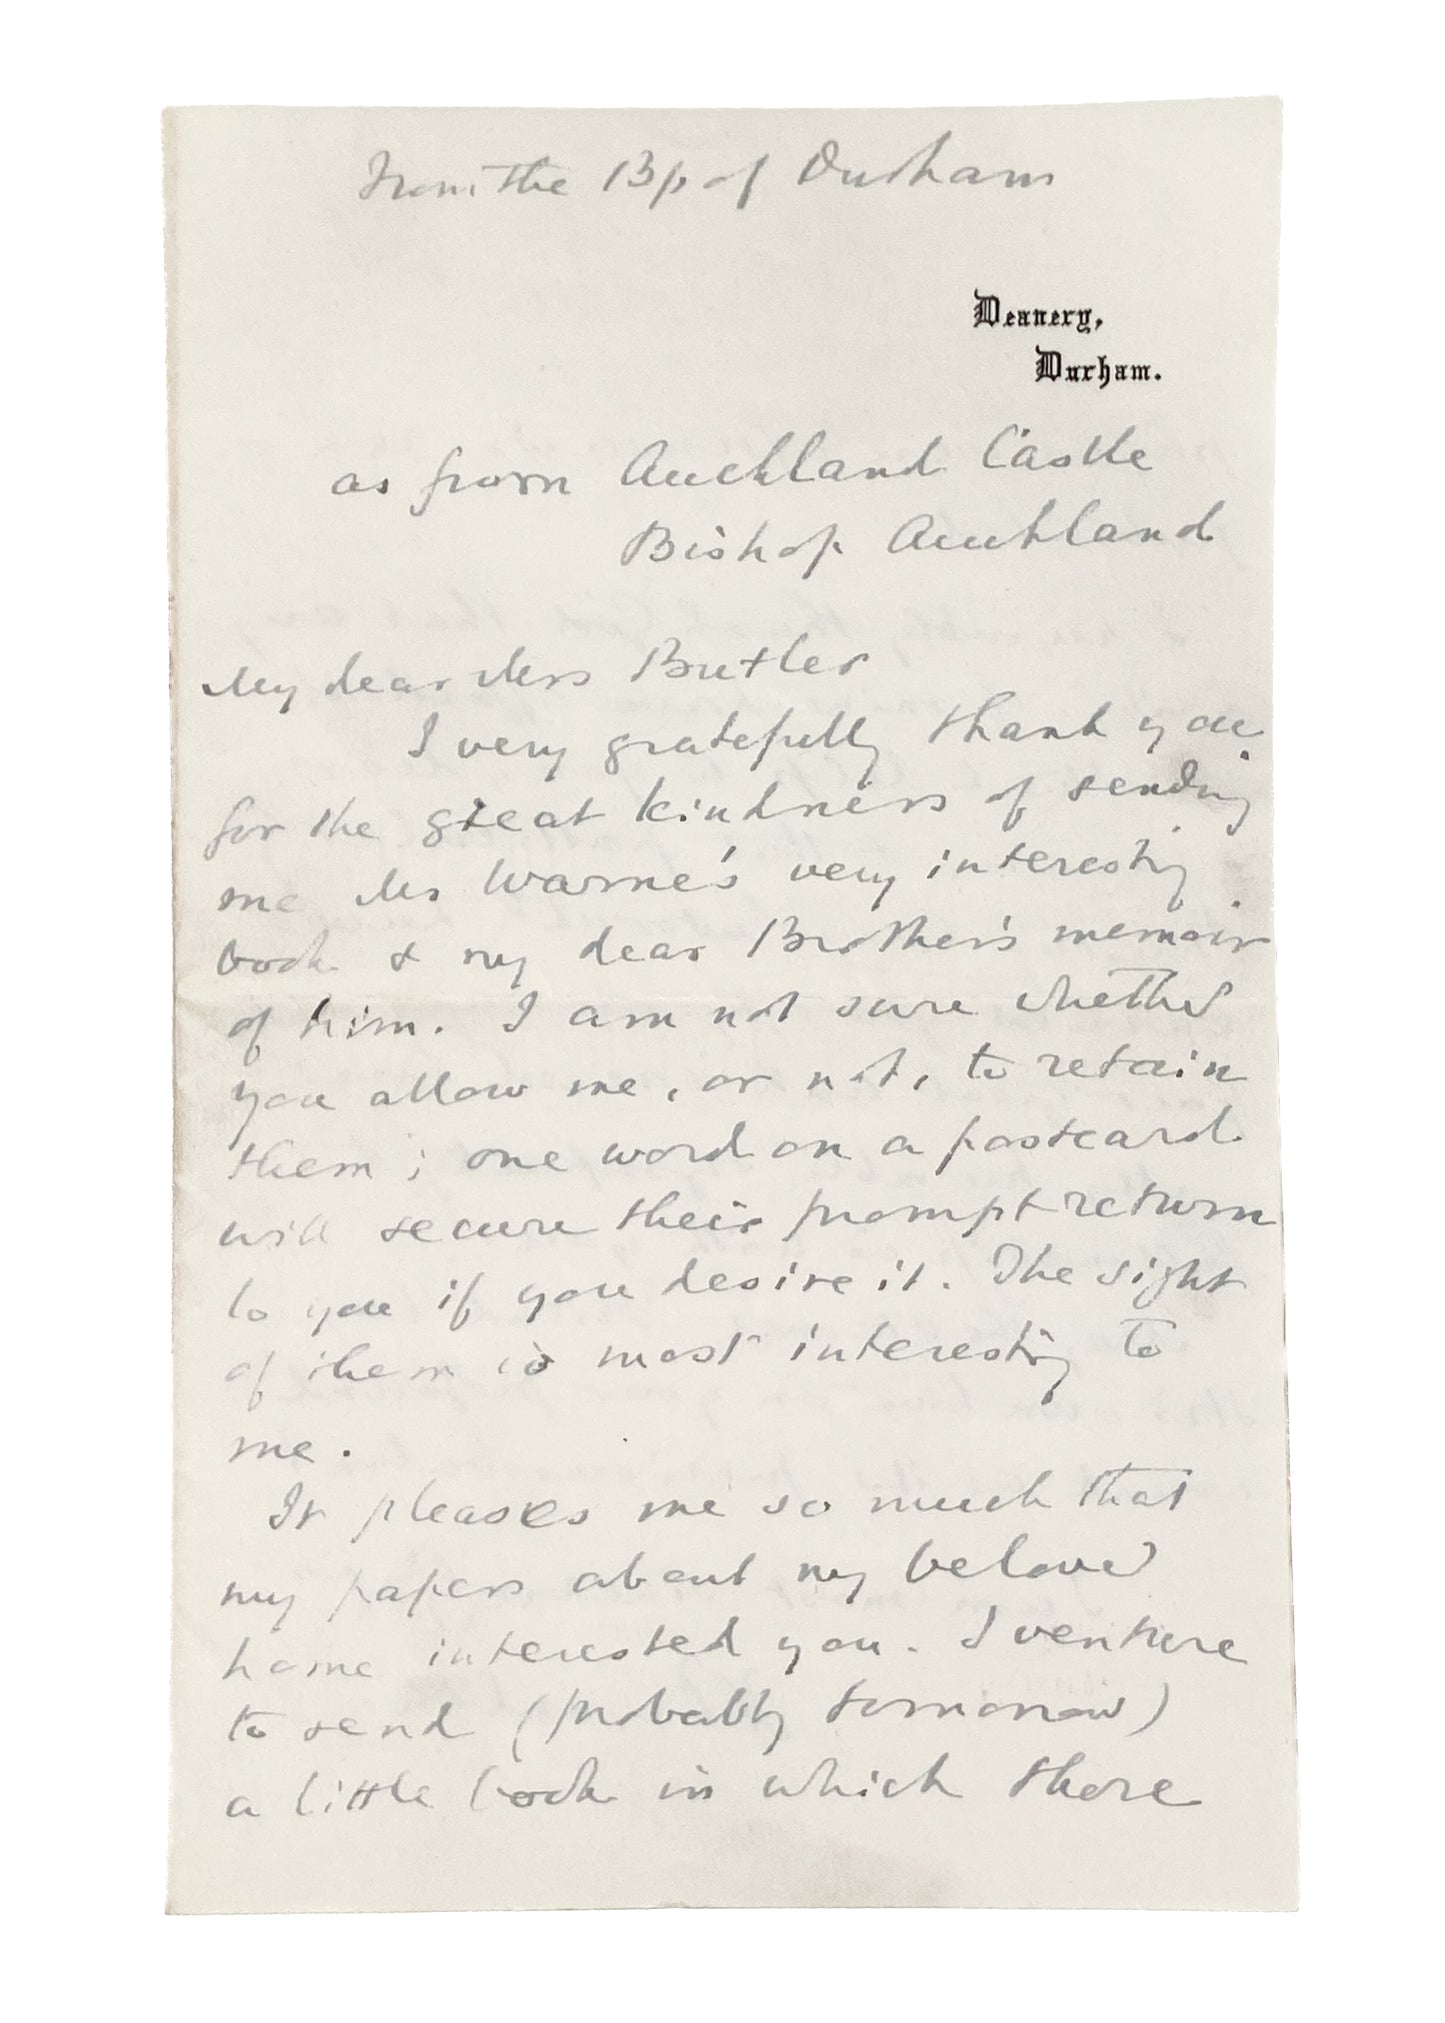 From the Bp of Durham
Deanery,
Durham.
as from Auckland Castle
Bishop Auckland
My dear Mrs Butler
I very gratefully thank you
for the great kindness of sending
me Mr Warne's very interesting
book & my dear Brother's memoir
of him. I am not sure whether
you allow me, or not, to retain
them; one word on a postcard
will secure their prompt return
to you if you desire it. The sight
of them is most interesting to
me.
It pleases me so much that
my papers about my beloved
home interested you. I venture
to send (probably tomorrow)
a little book in which there